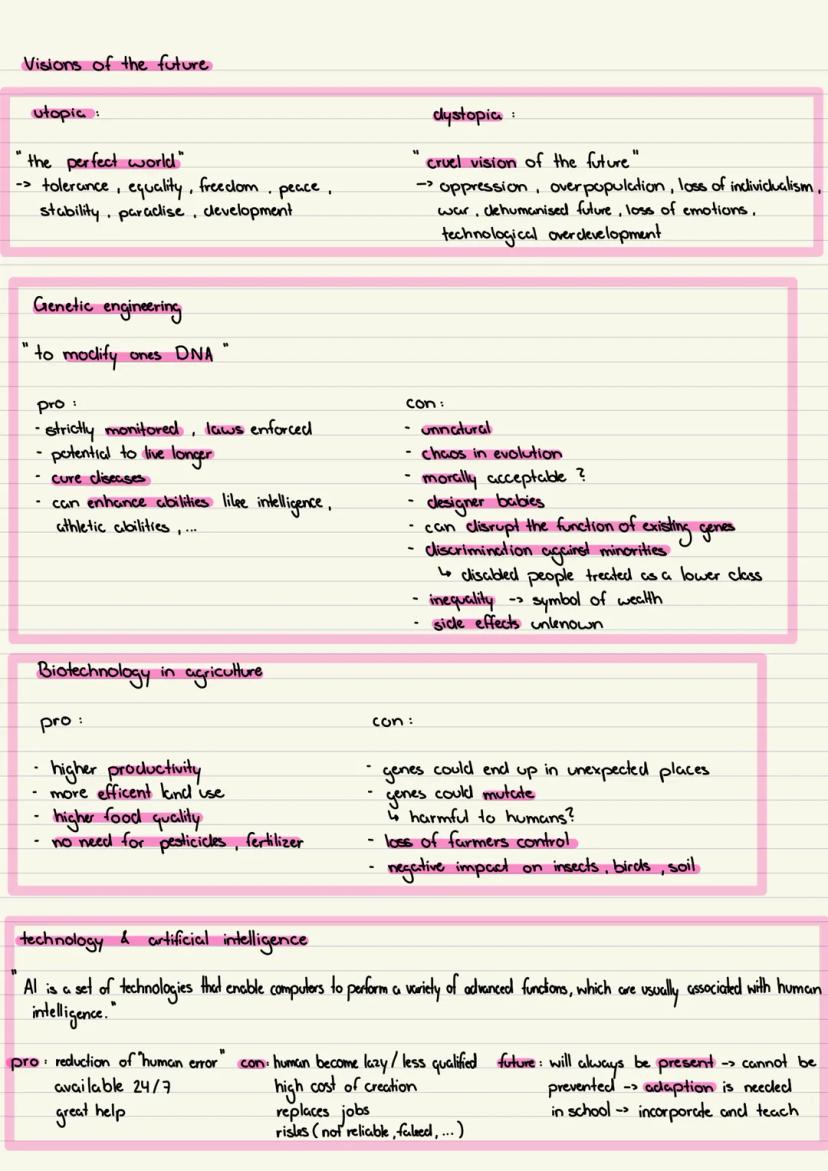 Visions of the future
utopic:
"the perfect world"
-> tolerance, equality, freedom, peace,
stability, paradise, development
dystopic:
"cruel vision of the future"
-> oppression, overpopulation, loss of individualism,
war, dehumanised future, loss of emotions,
technological overdevelopment
Genetic engineering
"to modify ones DNA"
pro:
- strictly monitored, laws enforced
- potential to live longer
- cure diseases
- can enhance abilities like intelligence,
athletic abilities,...
con:
- unnatural
- chaos in evolution
- morally acceptable?
- designer babies
- can disrupt the function of existing genes
- discrimination against minorities
↳ disabled people treated as a lower class
- inequality -> symbol of wealth
- side effects unknown
Biotechnology in agriculture
pro:
- higher productivity
- more efficent land use
- higher food quality
- no need for pesticides, fertilizer
con:
- genes could end up in unexpected places
- genes could mutate
↳ harmful to humans?
- loss of farmers control
- negative impact on insects, birds, soil
technology & artificial intelligence
"AI is a set of technologies that enable computers to perform a variety of advanced functions, which are usually associated with human
intelligence."
pro: reduction of "human error"
available 24/7
great help
con: human become lazy/less qualified
high cost of creation
replaces jobs
risks (not reliable, faked,...)
future: will always be present -> cannot be
prevented -> adaption is needed
in school -> incorporate and teach